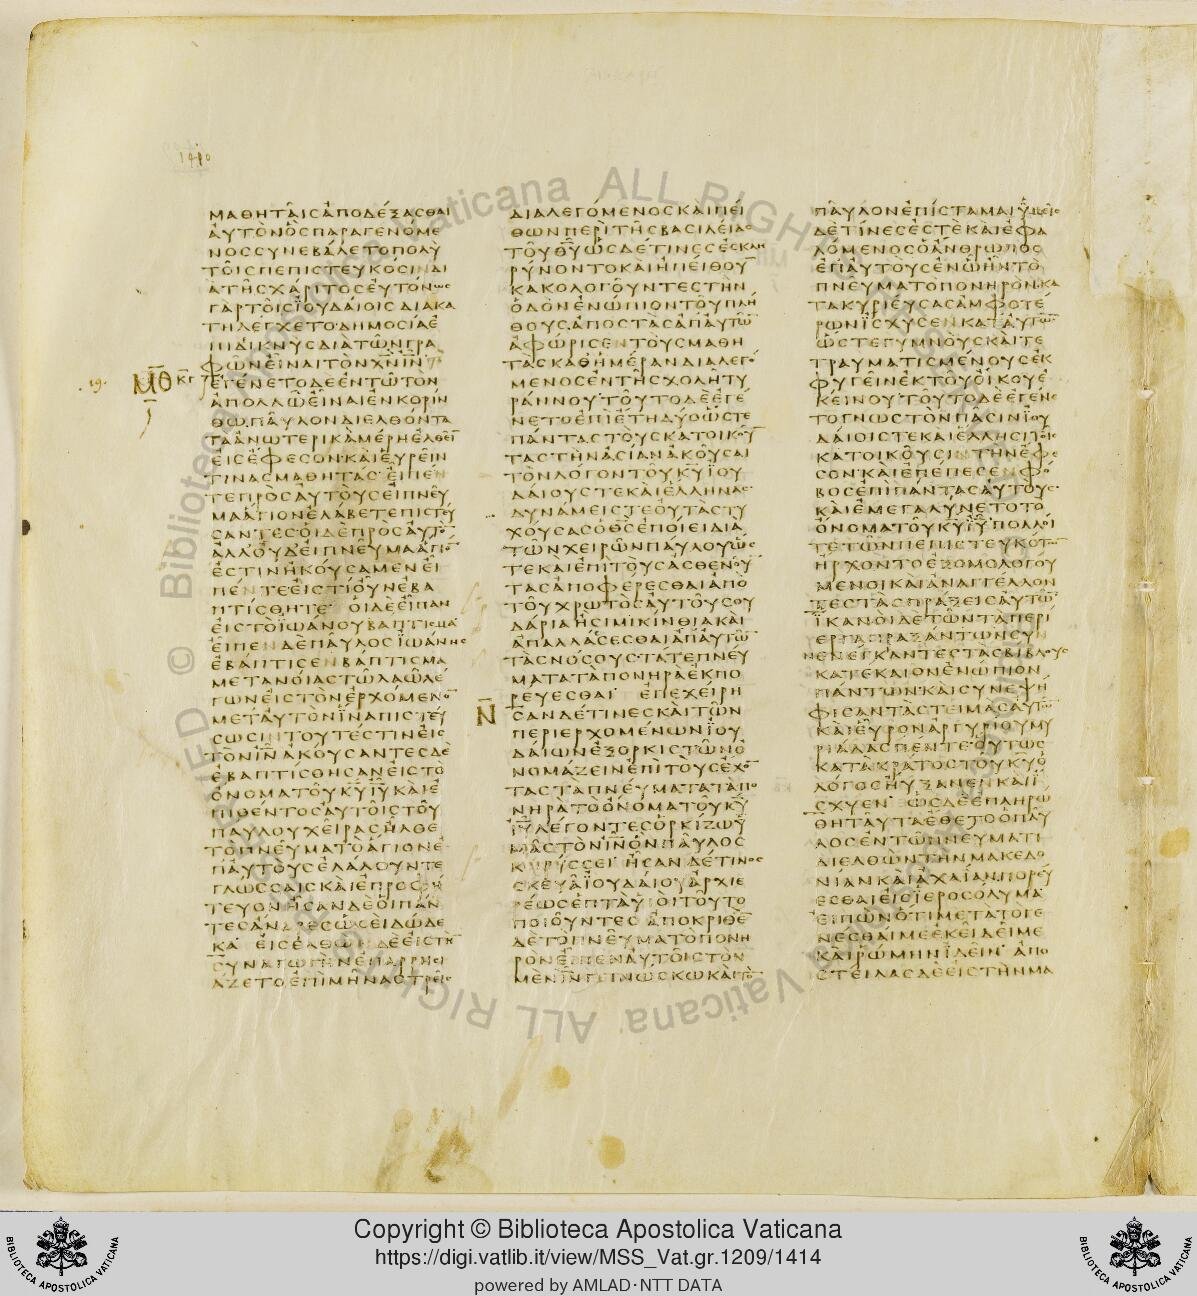 1410
ΜΑΘΗΤΑΙΣΑΠΟΔΕΞΑΣΘΑΙ
ΑΥΤΟΝΟΣΠΑΡΑΓΕΝΟΜΕ
ΝΟΣΣΥΝΕΒΑΛΕΤΟΠΟΛΥ
ΤΟΙΣΠΕΠΙΣΤΕΥΚΟΣΙΝΔΙ
ΑΤΗΣΧΑΡΙΤΟΣΕΥΤΟΝΩΣ
ΓΑΡΤΟΙΣΙΟΥΔΑΙΟΙΣΔΙΑΚΑ
ΤΗΛΕΓΧΕΤΟΔΗΜΟΣΙΑΕ
ΠΙΔΙΚΝΥΣΔΙΑΤΩΝΓΡΑ
ΦΩΝΕΙΝΑΙΤΟΝΧΝΙΝ
19 ΜΘ ΕΓΕΝΕΤΟΔΕΕΝΤΩΤΟΝ
ΑΠΟΛΛΩΕΙΝΑΙΕΝΚΟΡΙΝ
ΘΩΠΑΥΛΟΝΔΙΕΛΘΟΝΤΑ
ΤΑΑΝΩΤΕΡΙΚΑΜΕΡΗΕΛΘΕΙ
ΕΙΣΕΦΕΣΟΝΚΑΙΕΥΡΕΙΝ
ΤΙΝΑΣΜΑΘΗΤΑΣΕΙΠΕΝ
ΤΕΠΡΟΣΑΥΤΟΥΣΕΙΠΝΕΥ
ΜΑΑΓΙΟΝΕΛΑΒΕΤΕΠΙΣΤΕΥ
ΣΑΝΤΕΣΟΙΔΕΠΡΟΣΑΥΤΟ
ΑΛΛΟΥΔΕΙΠΝΕΥΜΑΑΓΙΟ
ΕΣΤΙΝΗΚΟΥΣΑΜΕΝΕΙ
ΠΕΝΤΕΕΙΣΤΙΟΥΝΕΒΑ
ΠΤΙΣΘΗΤΕ ΟΙΔΕΕΙΠΑΝ
ΕΙΣΤΟΙΩΑΝΟΥΒΑΠΤΙΣΜΑ
ΕΙΠΕΝΔΕΠΑΥΛΟΣΙΩΑΝΗΣ
ΕΒΑΠΤΙΣΕΝΒΑΠΤΙΣΜΑ
ΜΕΤΑΝΟΙΑΣΤΩΛΑΩΛΕ
ΓΩΝΕΙΣΤΟΝΕΡΧΟΜΕΝΟ
ΜΕΤΑΥΤΟΝΙΝΑΠΙΣΤΕΥ
ΣΩΣΙΝΤΟΥΤΕΣΤΙΝΕΙΣ
ΤΟΝΙΝΑΚΟΥΣΑΝΤΕΣΔΕ
ΕΒΑΠΤΙΣΘΗΣΑΝΕΙΣΤΟ
ΟΝΟΜΑΤΟΥΚΥΙΥΚΑΙΕ
ΠΙΘΕΝΤΟΣΑΥΤΟΙΣΤΟΥ
ΠΑΥΛΟΥΧΕΙΡΑΣΗΛΘΕ
ΤΟΠΝΕΥΜΑΤΟΑΓΙΟΝΕ
ΠΑΥΤΟΥΣΕΛΑΛΟΥΝΤΕ
ΓΛΩΣΣΑΙΣΚΑΙΕΠΡΟΦΗ
ΤΕΥΟΝΗΣΑΝΔΕΟΙΠΑΝ
ΤΕΣΑΝΔΡΕΣΩΣΕΙΔΩΔΕ
ΚΑ ΕΙΣΕΛΘΩΝΔΕΕΙΣΤΗ
ΣΥΝΑΓΩΓΗΝΕΠΑΡΡΗΣΙ
ΑΖΕΤΟΕΠΙΜΗΝΑΣΤΡΕΙΣ
ΔΙΑΛΕΓΟΜΕΝΟΣΚΑΙΠΕΙ
ΘΩΝΠΕΡΙΤΗΣΒΑΣΙΛΕΙΑΣ
ΤΟΥΘΥΩΣΔΕΤΙΝΕΣΕΣΚΛΗ
ΡΥΝΟΝΤΟΚΑΙΗΠΕΙΘΟΥ
ΚΑΚΟΛΟΓΟΥΝΤΕΣΤΗΝ
ΟΔΟΝΕΝΩΠΙΟΝΤΟΥΠΛΗ
ΘΟΥΣΑΠΟΣΤΑΣΑΠΑΥΤΩ
ΑΦΩΡΙΣΕΝΤΟΥΣΜΑΘΗ
ΤΑΣΚΑΘΗΜΕΡΑΝΔΙΑΛΕΓΟ
ΜΕΝΟΣΕΝΤΗΣΧΟΛΗΤΥ
ΡΑΝΝΟΥΤΟΥΤΟΔΕΕΓΕ
ΝΕΤΟΕΠΙΕΤΗΔΥΟΩΣΤΕ
ΠΑΝΤΑΣΤΟΥΣΚΑΤΟΙΚΟΥ
ΤΑΣΤΗΝΑΣΙΑΝΑΚΟΥΣΑΙ
ΤΟΝΛΟΓΟΝΤΟΥΚΥΙΟΥ
ΔΑΙΟΥΣΤΕΚΑΙΕΛΛΗΝΑΣ
ΔΥΝΑΜΕΙΣΤΕΟΥΤΑΣΤΥ
ΧΟΥΣΑΣΟΘΣΕΠΟΙΕΙΔΙΑ
ΤΩΝΧΕΙΡΩΝΠΑΥΛΟΥΩΣ
ΤΕΚΑΙΕΠΙΤΟΥΣΑΣΘΕΝΟΥ
ΤΑΣΑΠΟΦΕΡΕΣΘΑΙΑΠΟ
ΤΟΥΧΡΩΤΟΣΑΥΤΟΥΣΟΥ
ΔΑΡΙΑΗΣΙΜΙΚΙΝΘΙΑΚΑΙ
ΑΠΑΛΛΑΣΕΣΘΑΙΑΠΑΥΤΩ
ΤΑΣΝΟΣΟΥΣΤΑΤΕΠΝΕΥ
ΜΑΤΑΤΑΠΟΝΗΡΑΕΚΠΟ
ΡΕΥΕΣΘΑΙ ΕΠΕΧΕΙΡΗ
Ν ΣΑΝΔΕΤΙΝΕΣΚΑΙΤΩΝ
ΠΕΡΙΕΡΧΟΜΕΝΩΝΙΟΥ
ΔΑΙΩΝΕΞΟΡΚΙΣΤΩΝΟ
ΝΟΜΑΖΕΙΝΕΠΙΤΟΥΣΕΧΟ
ΤΑΣΤΑΠΝΕΥΜΑΤΑΤΑΠΟ
ΝΗΡΑΤΟΟΝΟΜΑΤΟΥΚΥ
ΙΥΛΕΓΟΝΤΕΣΟΡΚΙΖΩΥ
ΜΑΣΤΟΝΙΝΟΝΠΑΥΛΟΣ
ΚΗΡΥΣΣΕΙ ΗΣΑΝΔΕΤΙΝΟΣ
ΣΚΕΥΑΙΟΥΔΑΙΟΥΑΡΧΙΕ
ΡΕΩΣΕΠΤΑΥΙΟΙΤΟΥΤΟ
ΠΟΙΟΥΝΤΕΣ ΑΠΟΚΡΙΘΕ
ΔΕΤΟΠΝΕΥΜΑΤΟΠΟΝΗ
ΡΟΝΕΙΠΕΝΑΥΤΟΙΣΤΟΝ
ΜΕΝΙΝΓΕΙΝΩΣΚΩΚΑΙΤΟ
ΠΑΥΛΟΝΕΠΙΣΤΑΜΑΙΥΜΕΙΣ
ΔΕΤΙΝΕΣΕΣΤΕΚΑΙΕΦΑ
ΛΟΜΕΝΟΣΟΑΝΘΡΩΠΟΣ
ΕΠΑΥΤΟΥΣΕΝΩΗΝΤΟ
ΠΝΕΥΜΑΤΟΠΟΝΗΡΟΝΚΑ
ΤΑΚΥΡΙΕΥΣΑΣΑΜΦΟΤΕ
ΡΩΝΙΣΧΥΣΕΝΚΑΤΑΥΤΩ
ΩΣΤΕΓΥΜΝΟΥΣΚΑΙΤΕ
ΤΡΑΥΜΑΤΙΣΜΕΝΟΥΣΕΚ
ΦΥΓΕΙΝΕΚΤΟΥΟΙΚΟΥΕ
ΚΕΙΝΟΥΤΟΥΤΟΔΕΕΓΕΝΕ
ΤΟΓΝΩΣΤΟΝΠΑΣΙΝΙΟΥ
ΔΑΙΟΙΣΤΕΚΑΙΕΛΛΗΣΙΤΟΙΣ
ΚΑΤΟΙΚΟΥΣΙΝΤΗΝΕΦΕ
ΣΟΝΚΑΙΕΠΕΠΕΣΕΝΦΟ
ΒΟΣΕΠΙΠΑΝΤΑΣΑΥΤΟΥΣ
ΚΑΙΕΜΕΓΑΛΥΝΕΤΟΤΟ
ΟΝΟΜΑΤΟΥΚΥΙΥΠΟΛΛΟΙ
ΤΕΤΩΝΠΕΠΙΣΤΕΥΚΟΤΩ
ΗΡΧΟΝΤΟΕΞΟΜΟΛΟΓΟΥ
ΜΕΝΟΙΚΑΙΑΝΑΓΓΕΛΛΟΝ
ΤΕΣΤΑΣΠΡΑΞΕΙΣΑΥΤΩ
ΙΚΑΝΟΙΔΕΤΩΝΤΑΠΕΡΙ
ΕΡΓΑΠΡΑΞΑΝΤΩΝΣΥΝ
ΝΕΝΕΓΚΑΝΤΕΣΤΑΣΒΙΒΛΟΥΣ
ΚΑΤΕΚΑΙΟΝΕΝΩΠΙΟΝ
ΠΑΝΤΩΝΚΑΙΣΥΝΕΨΗ
ΦΙΣΑΝΤΑΣΤΕΙΜΑΣΑΥΤΩ
ΚΑΙΕΥΡΟΝΑΡΓΥΡΙΟΥΜΥ
ΡΙΑΔΑΣΠΕΝΤΕΟΥΤΩΣ
ΚΑΤΑΚΡΑΤΟΣΤΟΥΚΥΟ
ΛΟΓΟΣΗΥΞΑΝΕΝΚΑΙΙ
ΣΧΥΕΝ ΩΣΔΕΕΠΛΗΡΩ
ΘΗΤΑΥΤΑΕΘΕΤΟΟΠΑΥ
ΛΟΣΕΝΤΩΠΝΕΥΜΑΤΙ
ΔΙΕΛΘΩΝΤΗΝΜΑΚΕΔΟ
ΝΙΑΝΚΑΙΑΧΑΙΑΝΠΟΡΕΥ
ΕΣΘΑΙΕΙΣΙΕΡΟΣΟΛΥΜΑ
ΕΙΠΩΝΟΤΙΜΕΤΑΤΟΓΕ
ΝΕΣΘΑΙΜΕΕΚΕΙΔΕΙΜΕ
ΚΑΙΡΩΜΗΝΙΔΕΙΝ ΑΠΟ
ΣΤΕΙΛΑΣΔΕΕΙΣΤΗΝΜΑ
© Biblioteca Apostolica Vaticana ALL RIGHTS RESERVED
Copyright © Biblioteca Apostolica Vaticana
https://digi.vatlib.it/view/MSS_Vat.gr.1209/1414
powered by AMLAD·NTT DATA
BIBLIOTECA APOSTOLICA VATICANA
BIBLIOTECA APOSTOLICA VATICANA